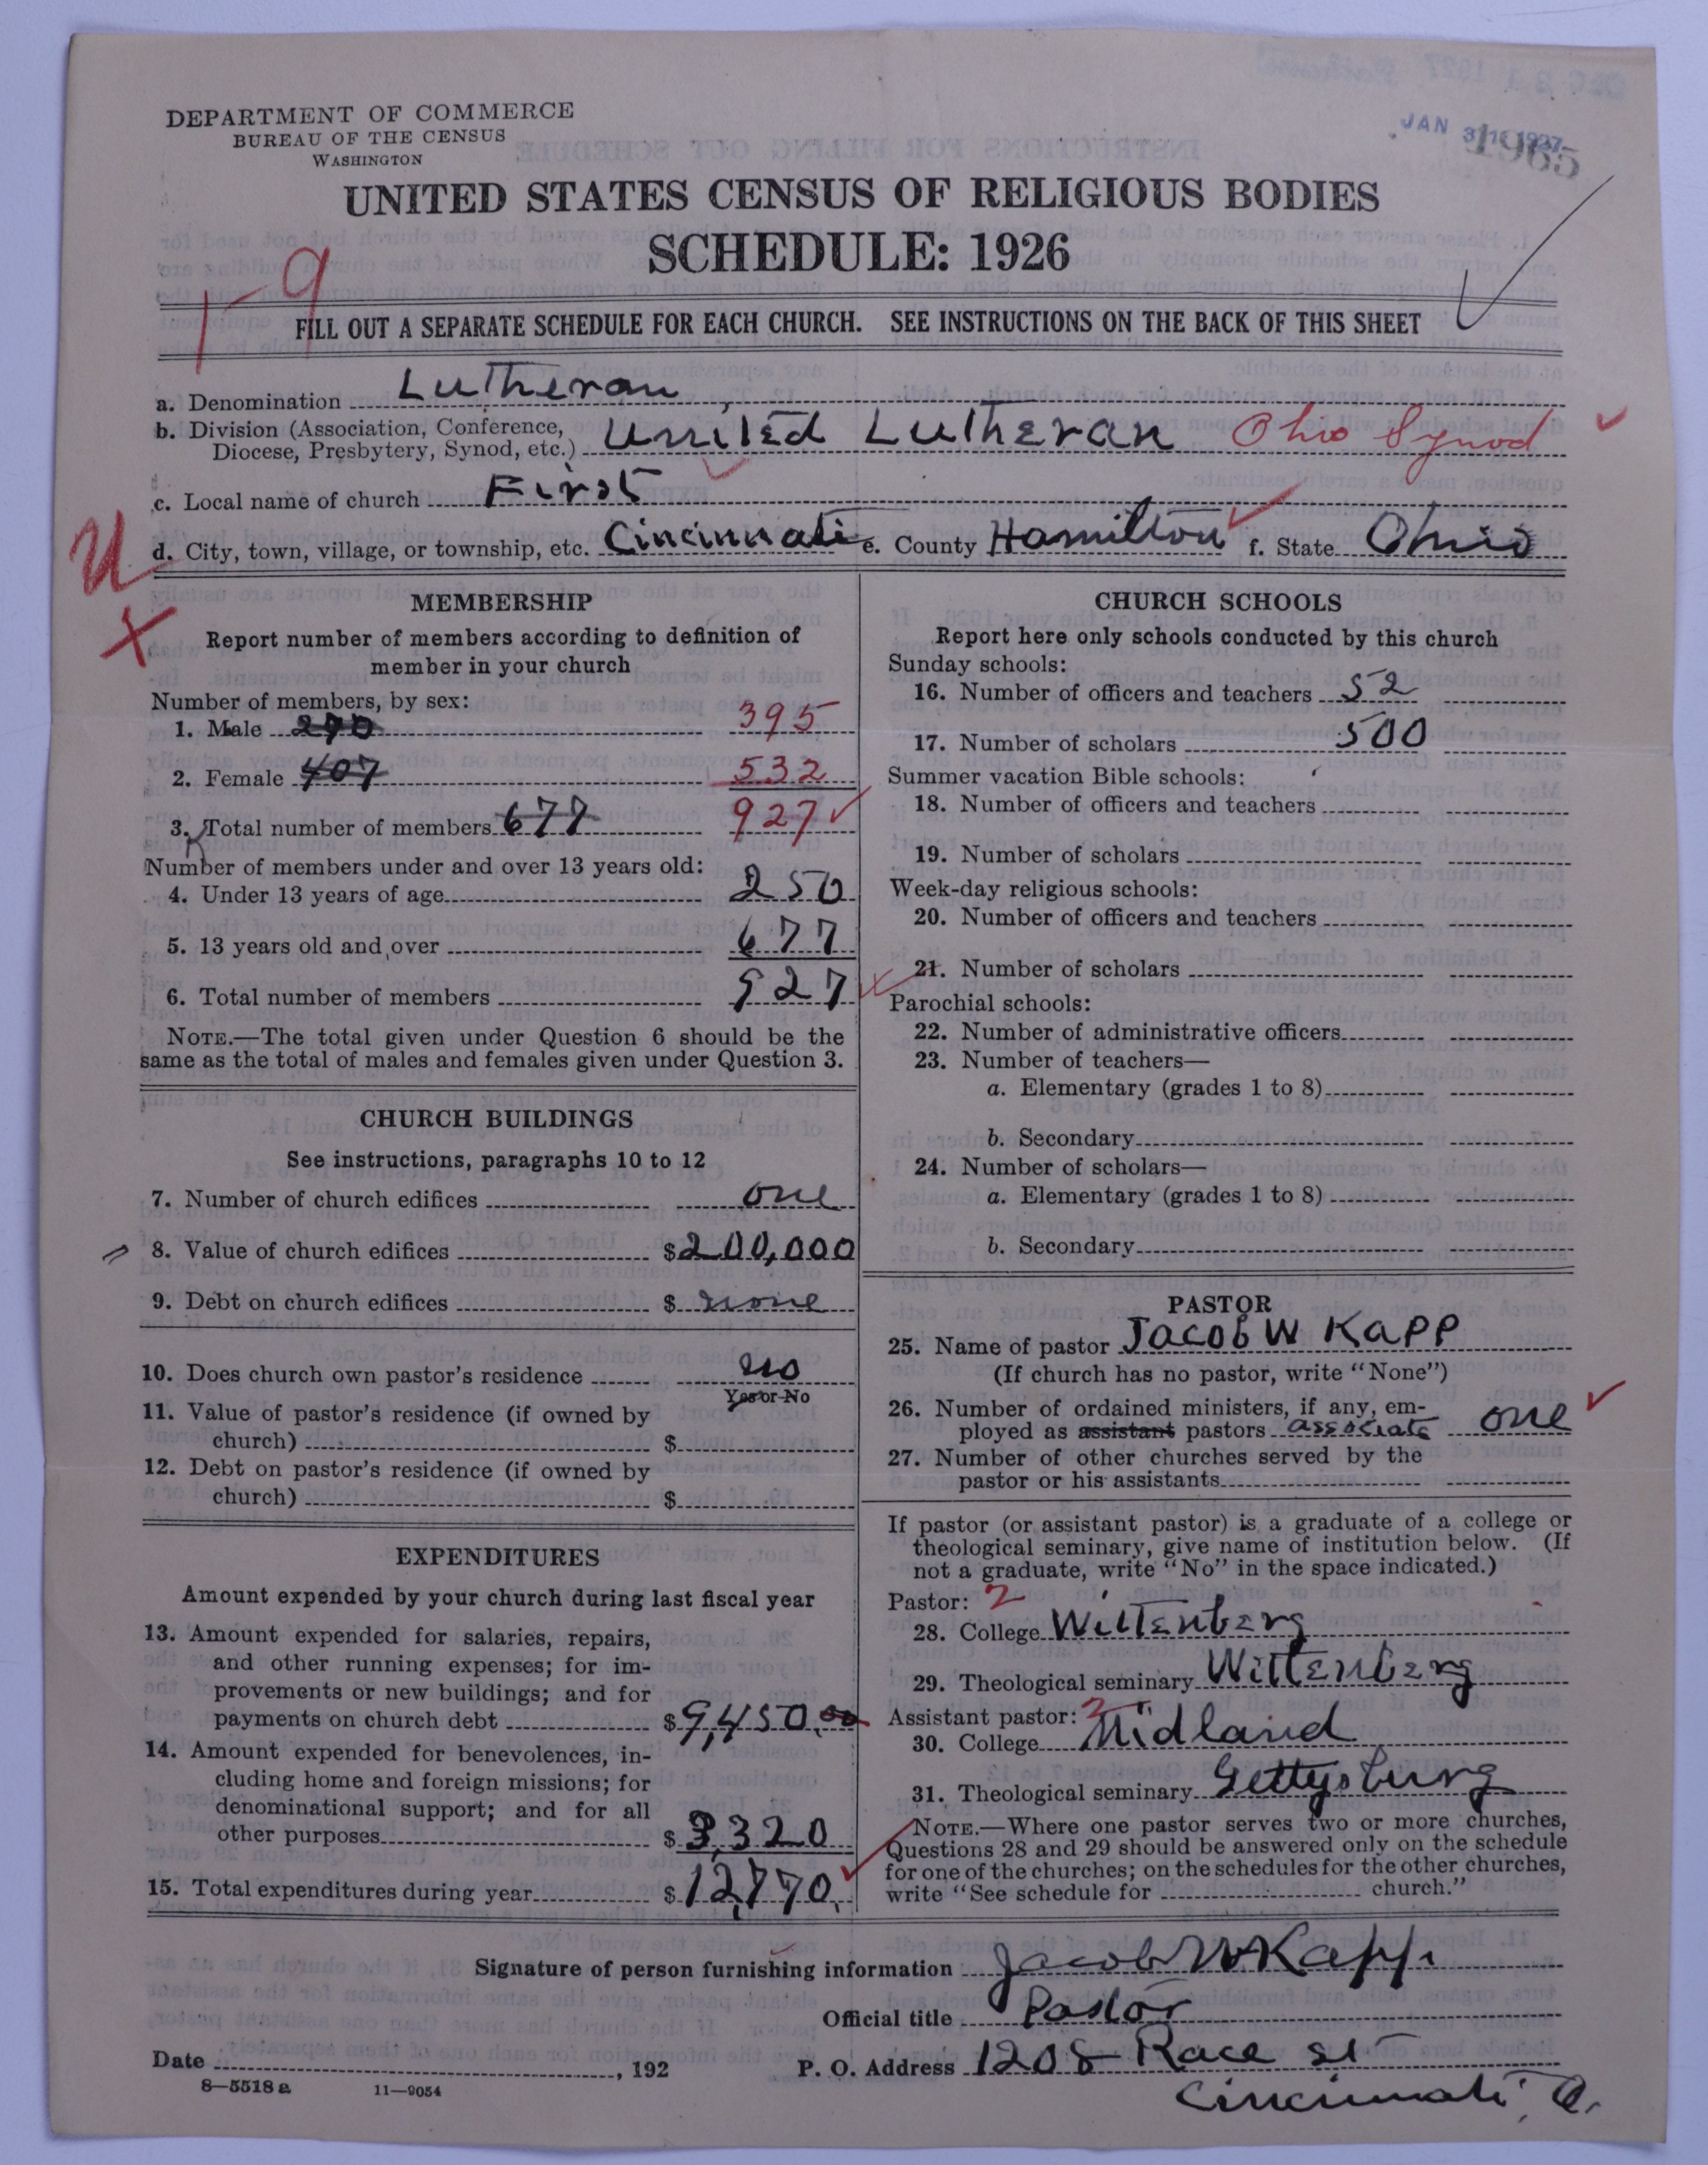 DEPARTMENT OF COMMERCE
BUREAU OF THE CENSUS
WASHINGTON
JAN 31 1927
1965
UNITED STATES CENSUS OF RELIGIOUS BODIES
SCHEDULE: 1926
1-9
FILL OUT A SEPARATE SCHEDULE FOR EACH CHURCH. SEE INSTRUCTIONS ON THE BACK OF THIS SHEET
a. Denomination Lutheran
b. Division (Association, Conference, Diocese, Presbytery, Synod, etc.) United Lutheran Ohio Synod
c. Local name of church First
d. City, town, village, or township, etc. Cincinnati e. County Hamilton f. State Ohio
U
X
MEMBERSHIP
Report number of members according to definition of
member in your church
Number of members, by sex:
1. Male 270 395
2. Female 407 532
3. Total number of members 677 927
Number of members under and over 13 years old:
4. Under 13 years of age 250
5. 13 years old and over 677
6. Total number of members 927
NOTE.—The total given under Question 6 should be the
same as the total of males and females given under Question 3.
CHURCH BUILDINGS
See instructions, paragraphs 10 to 12
7. Number of church edifices one
8. Value of church edifices $200,000
9. Debt on church edifices $ none
10. Does church own pastor's residence no
Yes or No
11. Value of pastor's residence (if owned by
church) $
12. Debt on pastor's residence (if owned by
church) $
EXPENDITURES
Amount expended by your church during last fiscal year
13. Amount expended for salaries, repairs,
and other running expenses; for im-
provements or new buildings; and for
payments on church debt $9,450.00
14. Amount expended for benevolences, in-
cluding home and foreign missions; for
denominational support; and for all
other purposes $ 3,320
15. Total expenditures during year $12,770.
CHURCH SCHOOLS
Report here only schools conducted by this church
Sunday schools:
16. Number of officers and teachers 52
17. Number of scholars 500
Summer vacation Bible schools:
18. Number of officers and teachers
19. Number of scholars
Week-day religious schools:
20. Number of officers and teachers
21. Number of scholars
Parochial schools:
22. Number of administrative officers
23. Number of teachers—
a. Elementary (grades 1 to 8)
b. Secondary
24. Number of scholars—
a. Elementary (grades 1 to 8)
b. Secondary
PASTOR
25. Name of pastor Jacob W Kapp
(If church has no pastor, write "None")
26. Number of ordained ministers, if any, em-
ployed as assistant pastors associate one
27. Number of other churches served by the
pastor or his assistants
If pastor (or assistant pastor) is a graduate of a college or
theological seminary, give name of institution below. (If
not a graduate, write "No" in the space indicated.)
Pastor: 2
28. College Wittenberg
29. Theological seminary Wittenberg
Assistant pastor: 2
30. College Midland
31. Theological seminary Gettysburg
NOTE.—Where one pastor serves two or more churches,
Questions 28 and 29 should be answered only on the schedule
for one of the churches; on the schedules for the other churches,
write "See schedule for church."
Signature of person furnishing information Jacob W Kapp
Official title Pastor
Date , 192 P. O. Address 1208 Race st
8—5518 a 11—9054
Cincinnati, O.